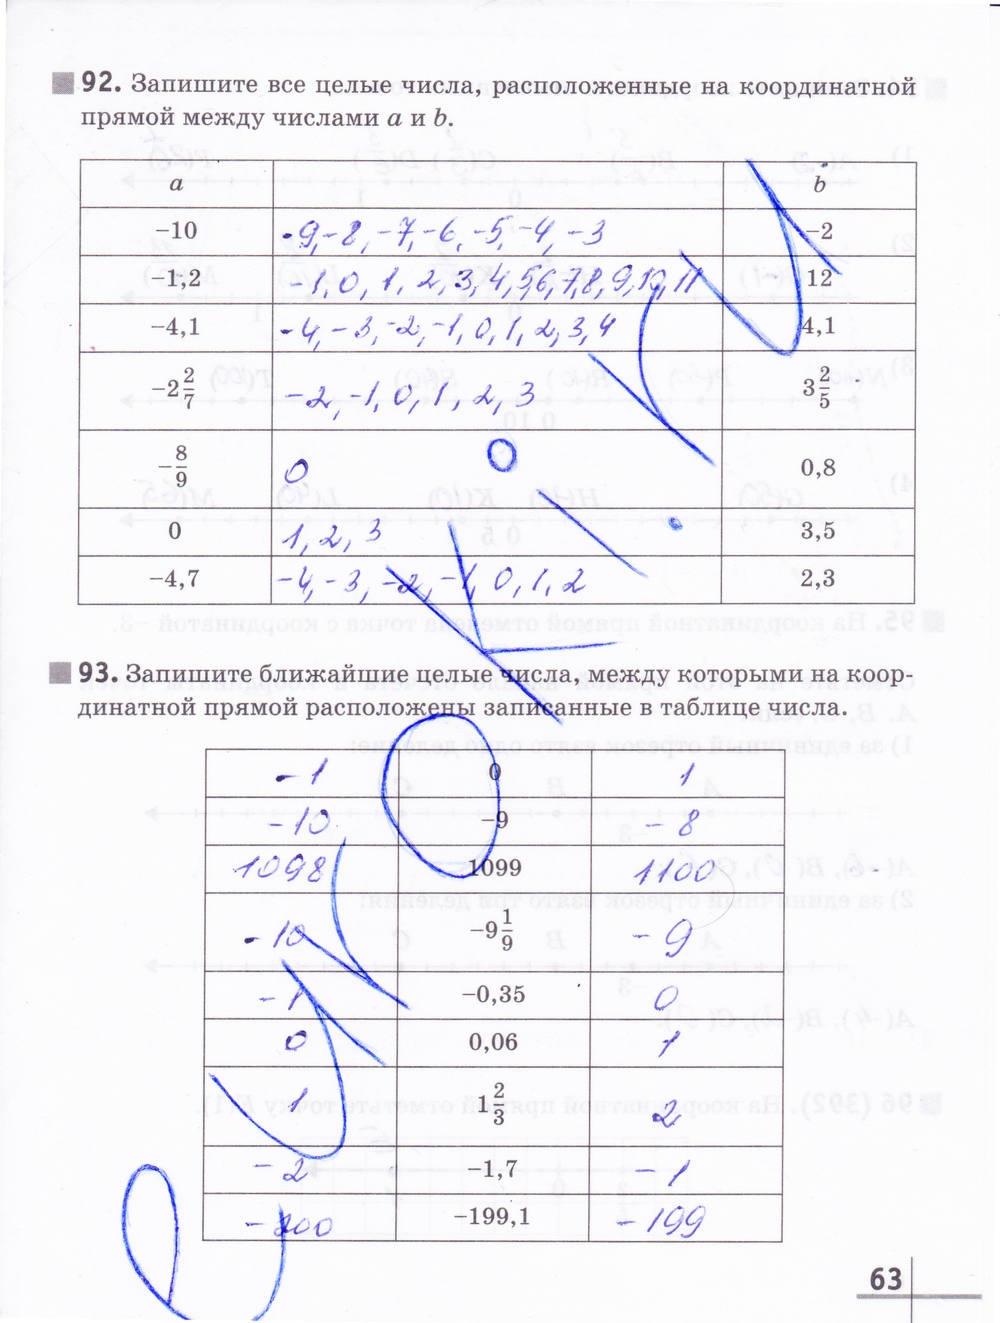 92. Запишите все целые числа, расположенные на координатной
прямой между числами a и b.
a b
−10 -9,-8,-7,-6,-5,-4,-3 −2
−1,2 -1,0,1,2,3,4,5,6,7,8,9,10,11 12
−4,1 -4,-3,-2,-1,0,1,2,3,4 4,1
−2 2/7 -2,-1,0,1,2,3 3 2/5
−8/9 0 0,8
0 1,2,3 3,5
−4,7 -4,-3,-2,-1,0,1,2 2,3
93. Запишите ближайшие целые числа, между которыми на коор-
динатной прямой расположены записанные в таблице числа.
-1 0 1
-10 −9 -8
1098 1099 1100
-10 −9 1/9 -9
-1 −0,35 0
0 0,06 1
1 1 2/3 2
-2 −1,7 -1
-200 −199,1 -199
63